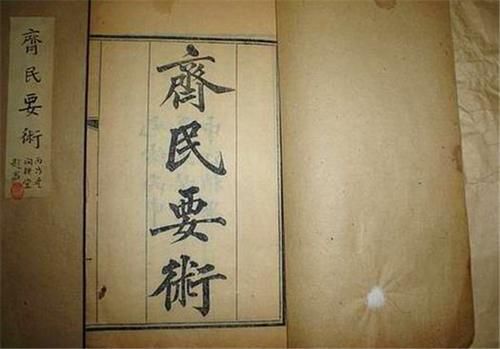 齊民要術
齊民要術